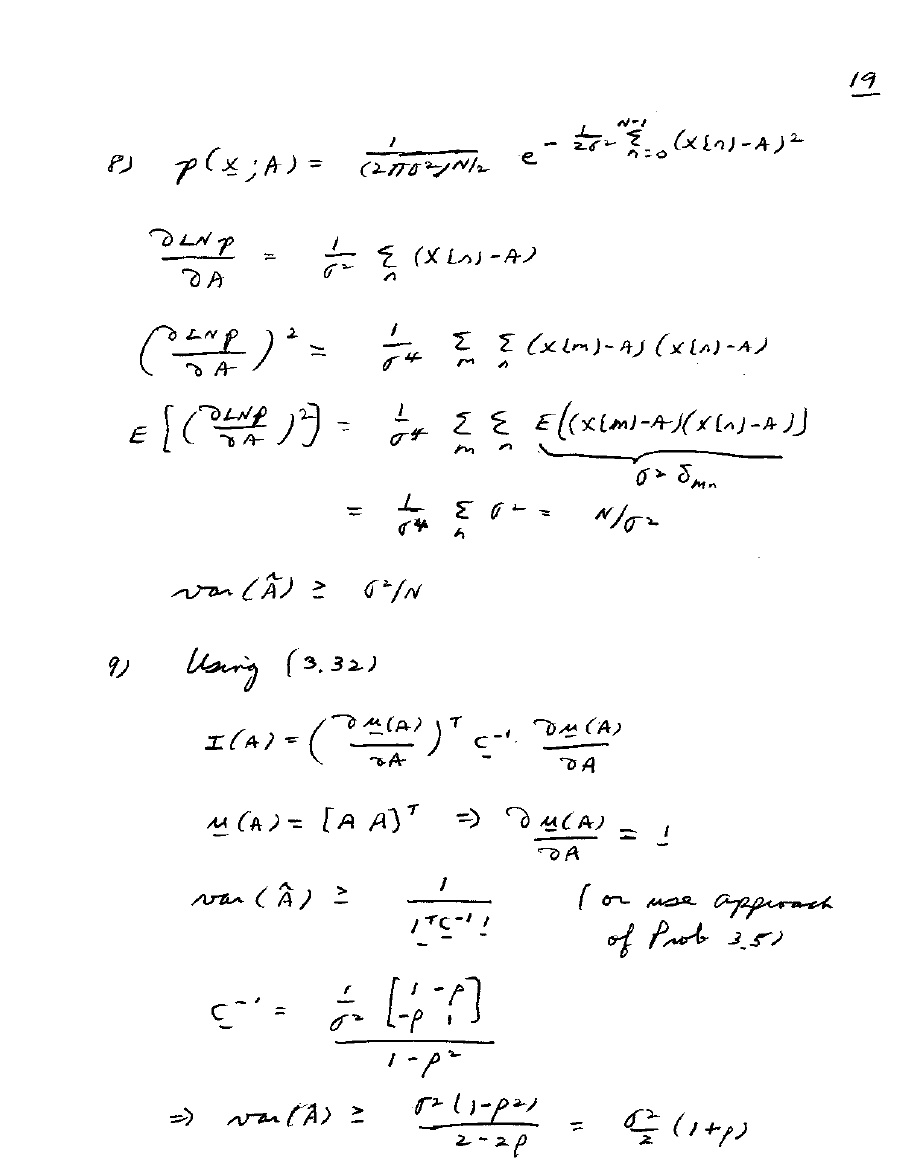 19
8) p(x̲;A) = 1/(2πσ²)^{N/2} e^{-1/(2σ²) Σ_{n=0}^{N-1} (x[n]-A)²}
∂LNp/∂A = 1/σ² Σ_n (x[n]-A)
(∂LNp/∂A)² = 1/σ⁴ Σ_m Σ_n (x[m]-A)(x[n]-A)
E[(∂LNp/∂A)²] = 1/σ⁴ Σ_m Σ_n E[(x[m]-A)(x[n]-A)]
σ² δ_{mn}
= 1/σ⁴ Σ_n σ² = N/σ²
var(Â) ≥ σ²/N
9) Using (3.32)
I(A) = (∂μ̲(A)/∂A)^T C̲^{-1} ∂μ̲(A)/∂A
μ̲(A) = [A A]^T ⇒ ∂μ̲(A)/∂A = 1̲
var(Â) ≥ 1/(1̲^T C̲^{-1} 1̲) (or use approach
of Prob 3.5)
C̲^{-1} = 1/σ² [1 -ρ; -ρ 1] / (1-ρ²)
⇒ var(Â) ≥ σ²(1-ρ²)/(2-2ρ) = σ²/2 (1+ρ)